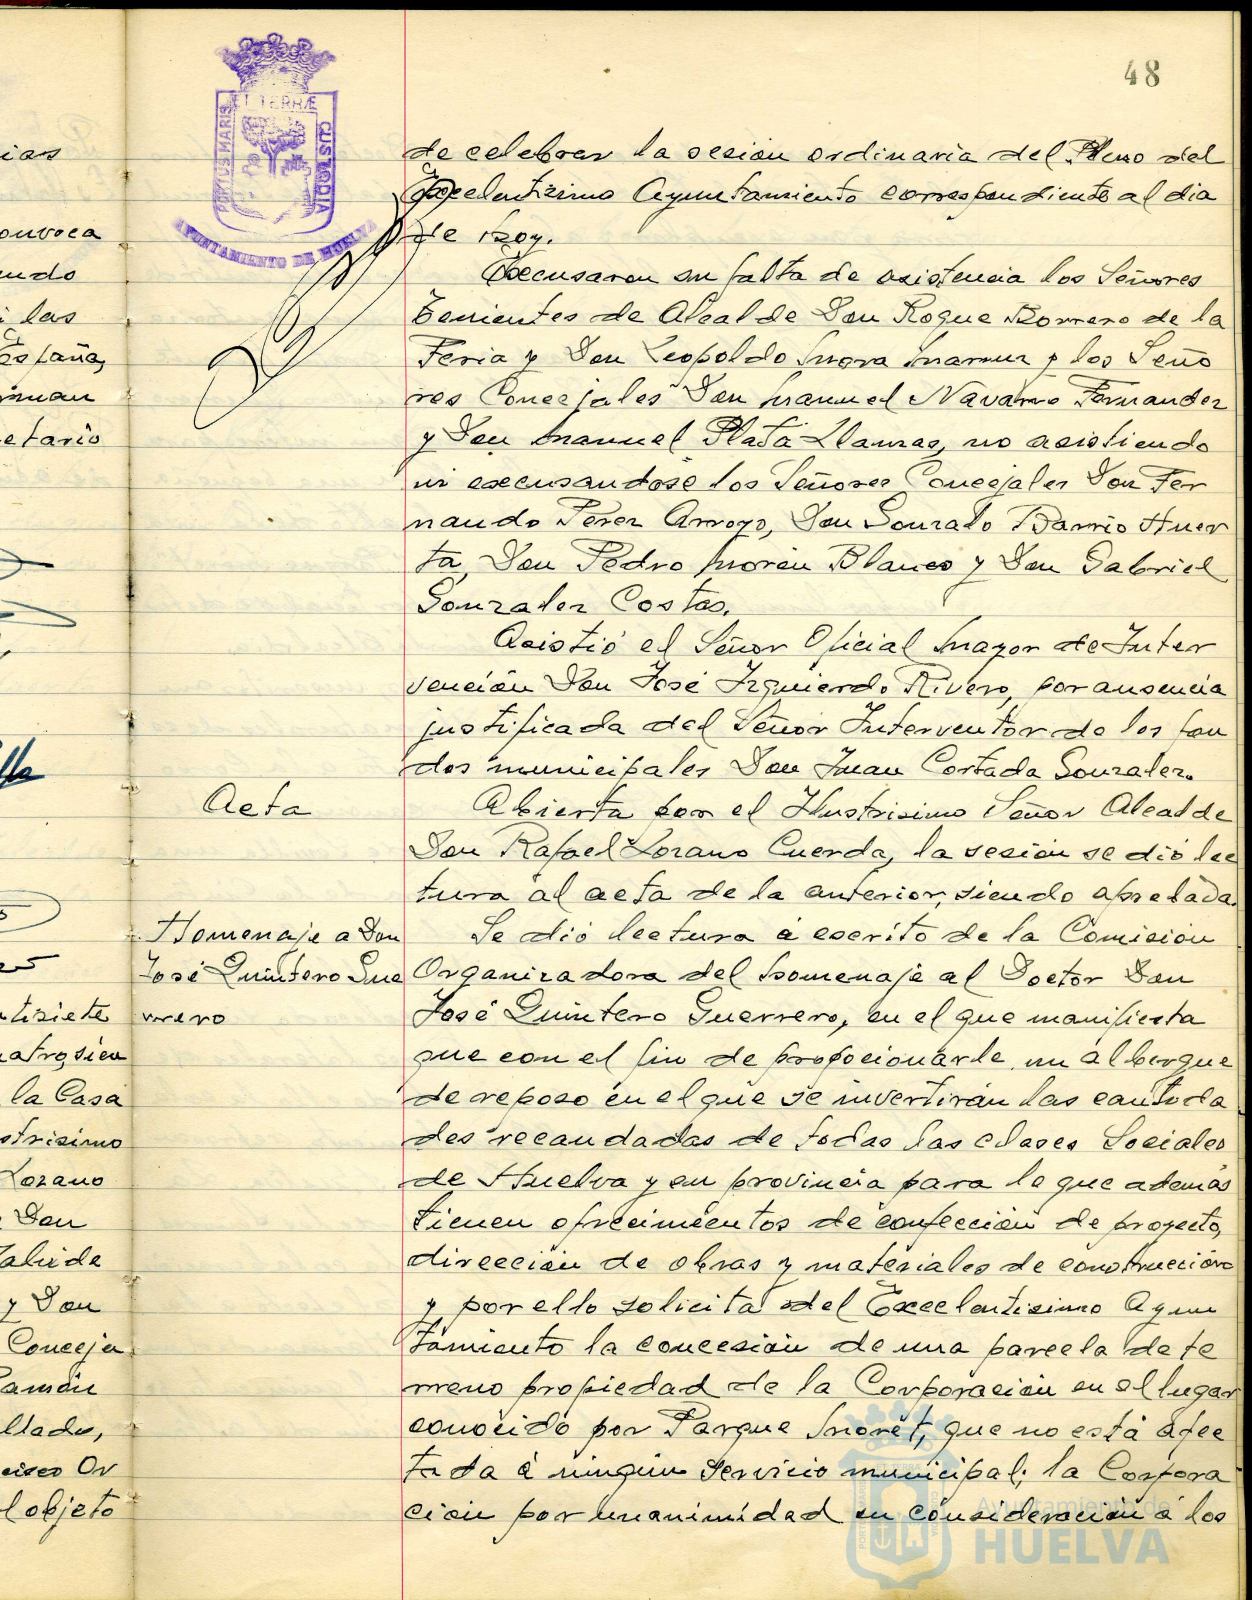 48
PORTUS MARIS
ET TERRÆ
CUSTODIA
AYUNTAMIENTO DE HUELVA
de celebrar la sesión ordinaria del Pleno del
Excelentisimo Ayuntamiento correspondiente al dia
de hoy.
Excusaron su falta de asistencia los Señores
Tenientes de Alcalde Don Roque Borrero de la
Feria y Don Leopoldo Mora y los Seño
res Concejales Don Manuel Navarro Fernandez
y Don Manuel Plata Llanzas, no asistiendo
ni excusandose los Señores Concejales Don Fer
nando Perez Arroyo, Don Gonzalo Barrio Huer
ta, Don Pedro Morón Blanco y Don Gabriel
Gonzalez Costas.
Asistió el Señor Oficial Mayor de Inter
vención Don José Izquierdo Rivero, por ausencia
justificada del Señor Interventor de los fon
dos municipales Don Juan Cortada Gonzalez.
Acta
Abierta por el Ilustrisimo Señor Alcalde
Don Rafael Lozano Cuerda, la sesión se dió lec
tura al acta de la anterior, siendo aprobada.
Homenaje a Don
José Quintero Gue
rrero
Se dió lectura á escrito de la Comisión
Organizadora del homenaje al Doctor Don
José Quintero Guerrero, en el que manifiesta
que con el fin de propocionarle un albergue
de reposo en el que se invertirán las cantida
des recaudadas de todas las clases Sociales
de Huelva y su provincia para lo que además
tienen ofrecimientos de confección de proyecto,
dirección de obras y materiales de construcción
y por ello solicita del Excelentisimo Ayun
tamiento la concesión de una parcela de te
rreno propiedad de la Corporación en el lugar
conocido por Parque Moret, que no está afec
tada á ningun servicio municipal; la Corpora
ción por unanimidad en consideración á los
ias
onvoca
ndo
i las
España,
etario
ntisiete
la Casa
strisimo
Lozano
Don
y Don
Conceja
Ramón
llado,
cisco Or
l objeto
Ayuntamiento de
HUELVA